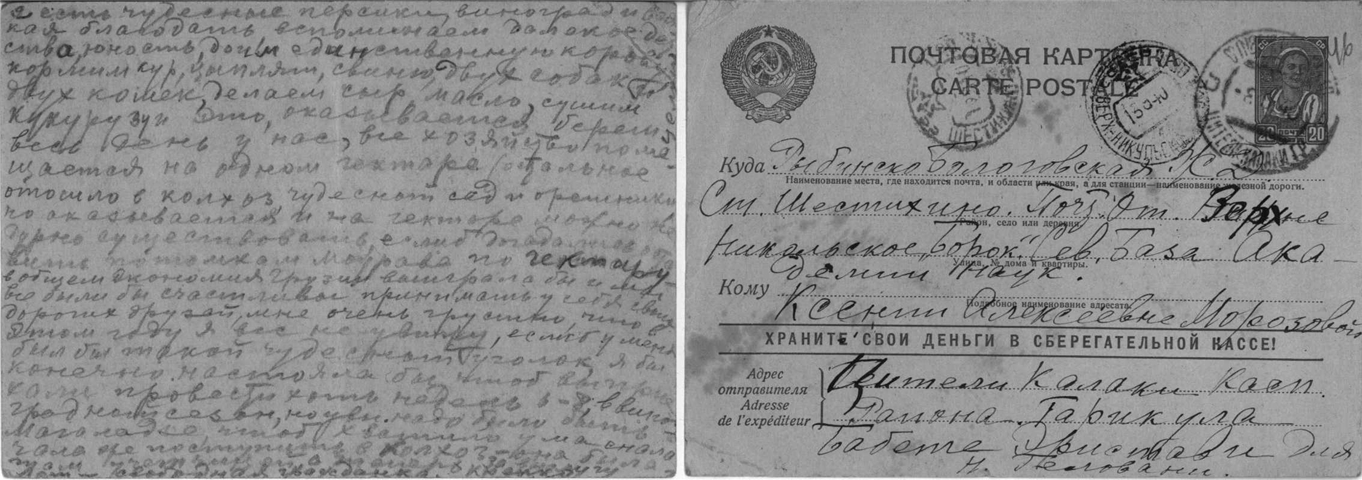 есть чудесные персики, виноград и вся
кая благодать вспоминаем далекое де
ства, юность, доим единственную корову
кормим кур, цыплят, свинью, двух собак
двух кошек делаем сыр масло, сушим
кукурузу Это, оказывается берет
весь день у нас, все хозяйство поме
щается на одном гектаре (остальное
отошло в колхоз чудесный сад и орешники
но оказывается и на гектаре можно не
дурно существовать если б догадались
потомкам Моурава по гектару
в общем экономия грузии выиграла бы и мы
все были бы счастливы принимать у себя своих
дорогих друзей, мне очень грустно что в
этом году я вас не увижу, если б у меня
был бы такой чудесный уголок, я бы
конечно настояла бы чтоб вы
провести хоть недель
надо было быть
чтоб хватило ума
поступить в колхоз
гражданка
ПОЧТОВАЯ КАРТОЧКА
CARTE POSTALE
20 20
Куда Рыбинско Бологовская Ж. Д.
Наименование места, где находится почта, и области или края, а для станции—наименование железной дороги.
Ст. Шестихино. Почт. От. Верхне
Район, село или деревня.
Никольское "Борок" База Ака-
Улица, № дома и квартиры.
демии Наук.
Кому Ксении Алексеевне Морозовой
Подробное наименование адресата
ХРАНИТЕ СВОИ ДЕНЬГИ В СБЕРЕГАТЕЛЬНОЙ КАССЕ!
Адрес отправителя
Adresse de l'expéditeur
Цители Калаки Касп.
Района Гарикула
Бабете Эристави для
Н.